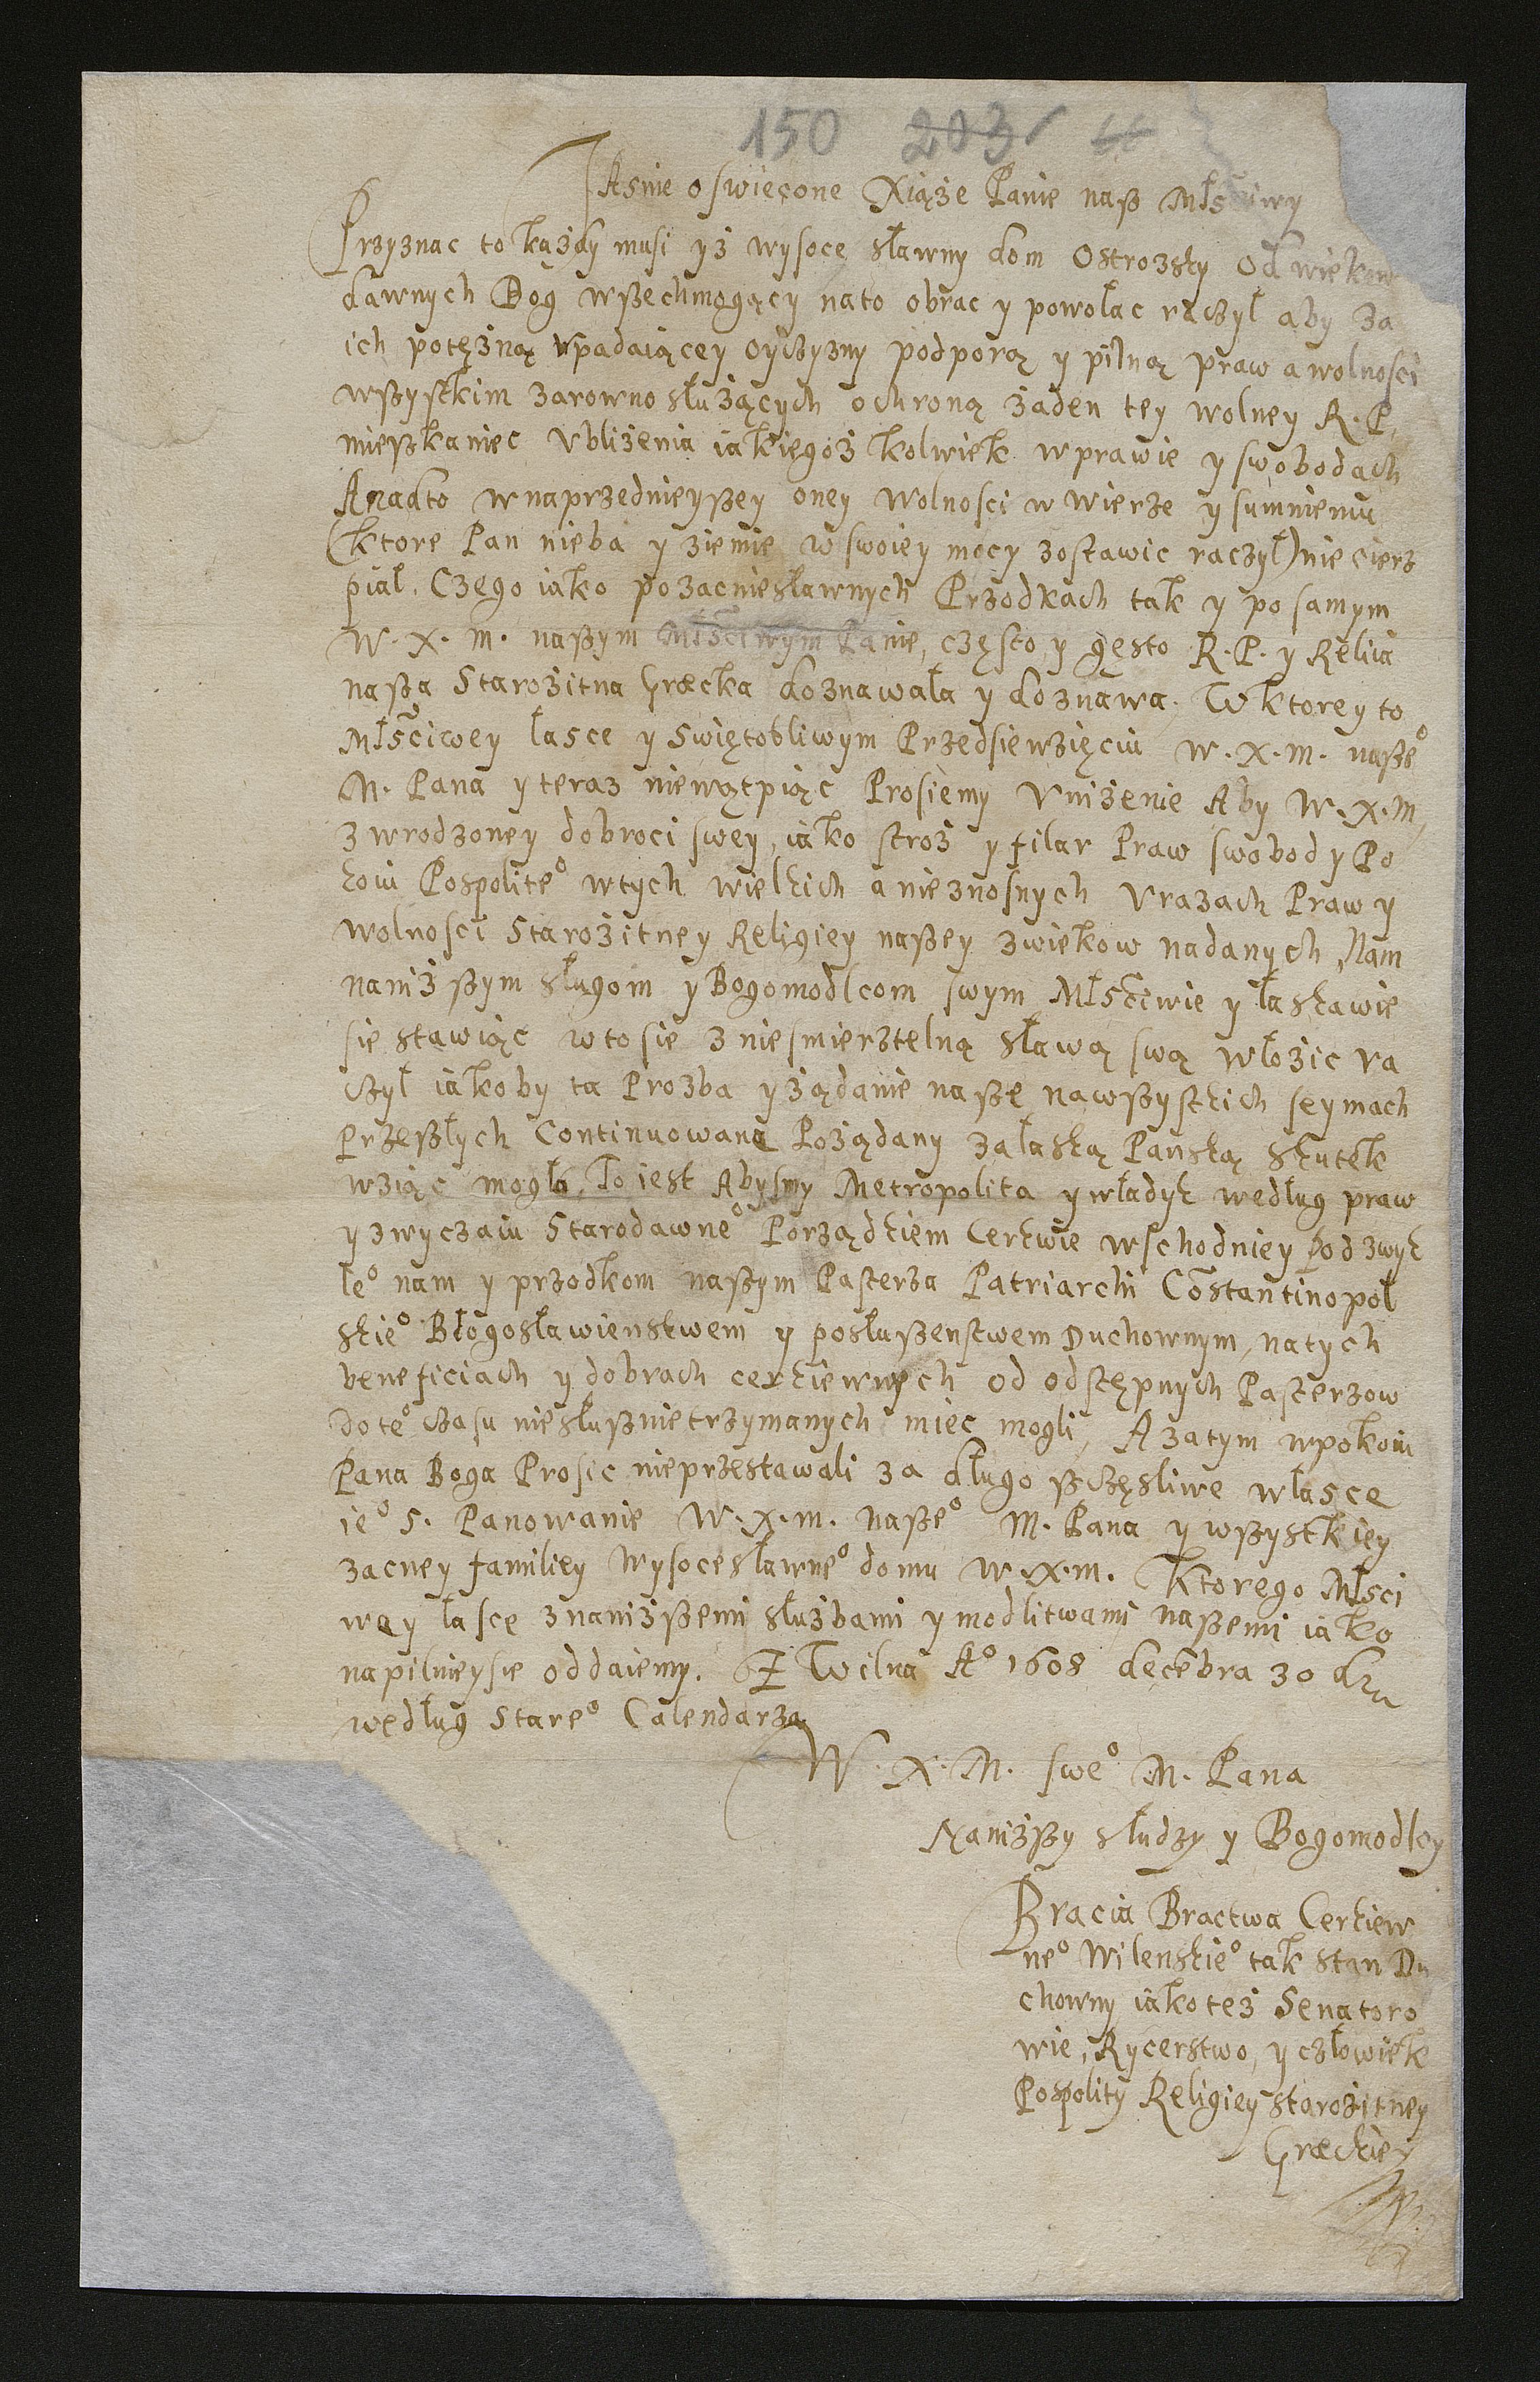 150 203
JAsnie oswięcone Xiąże Panie nasz Młściwy
Przyznac to każdy musi yż wysoce sławny dom Ostrozsky Od wiekow
dawnych Bog wszechmogący nato obrac y powołac raczył aby za
ich potężną vpadaiącey oyczyzny podporą y pilną praw a wolnosci
wszystkim zarowno służących ochroną żaden tey wolney R. P.
mieszkaniec Vbliżenia iakiegoż kolwiek wprawie y swobodach
Anadto wnaprzednieyszey oney Wolnosci w wierze y sumnieniu
(ktore Pan nieba y ziemie w swoiey mocy zostawic raczył) nie cierz
piał. Czego iako pozacniesławnych Przodkach tak y po samym
W. X. m. naszym Młściwym Panie, często y gęsto R. P. y Relia
nasza Starożitna Græcka doznawała y doznawa. W ktorey to
Młściwey łasce y Swiętobliwym Przedsiewzięciu W. X. m. nasze°
M. Pana y teraz niewątpiąc Prosiemy Vniżenie Aby W. X. M,
z wrodzoney dobroci swey, iako stroż y filar Praw swobod y Po
koiu Pospolite° wtych wielkich a nieznosnych Vrazach Praw y
wolnosci Starożitney Religiey naszey zwiekow nadanych, Nam
naniższym sługom y Bogomodlcom swym Młściwie y łaskawie
sie stawiąc w to sie z niesmiertelną sławą swą włożic ra
czył iakoby ta Prozba y żądanie nasze nawszystkich seymach
przeszłych Continuowana Pożądany załaską Pańską skutek
wziąc mogła, To iest Abysmy Metropolita y władyk według praw
y zwyczaiu Starodawne° Porządkiem Cerkwie wschodniey pod zwyk
łe° nam y przodkom naszym Pasterza Patriarchi Constantinopol
skie° Błogosławienstwem y posłuszenstwem Duchownym, natych
beneficiach y dobrach cerkiewnych od odstępnych Pasterzow
do te° czasu niesłusznie trzymanych miec mogli, A zatym wpokoiu
Pana Boga Prosic nieprzestawali za długo szczęsliwe własce
ie° s. Panowanie W. X. m. nasze° M. Pana y wszystkiey
zacney familiey Wysocesławne° domu W. X. m. Ktorego Młsci
wey łasce znaniższemi służbami y modlitwami naszemi iako
napilniey sie oddaiemy. Z Wilna A° 1608 decēbra 30 dn
według Stare° Calendarza
W. X. M. swe° M. Pana
Naniższy słudzy y Bogomodlcy
Bracia Bractwa Cerkiew
ne° Wilenskie° tak stan Du
chowny iako też Senatoro
wie, Rycerstwo, y człowiek
Pospolity Religiey starożitney
Græckiey